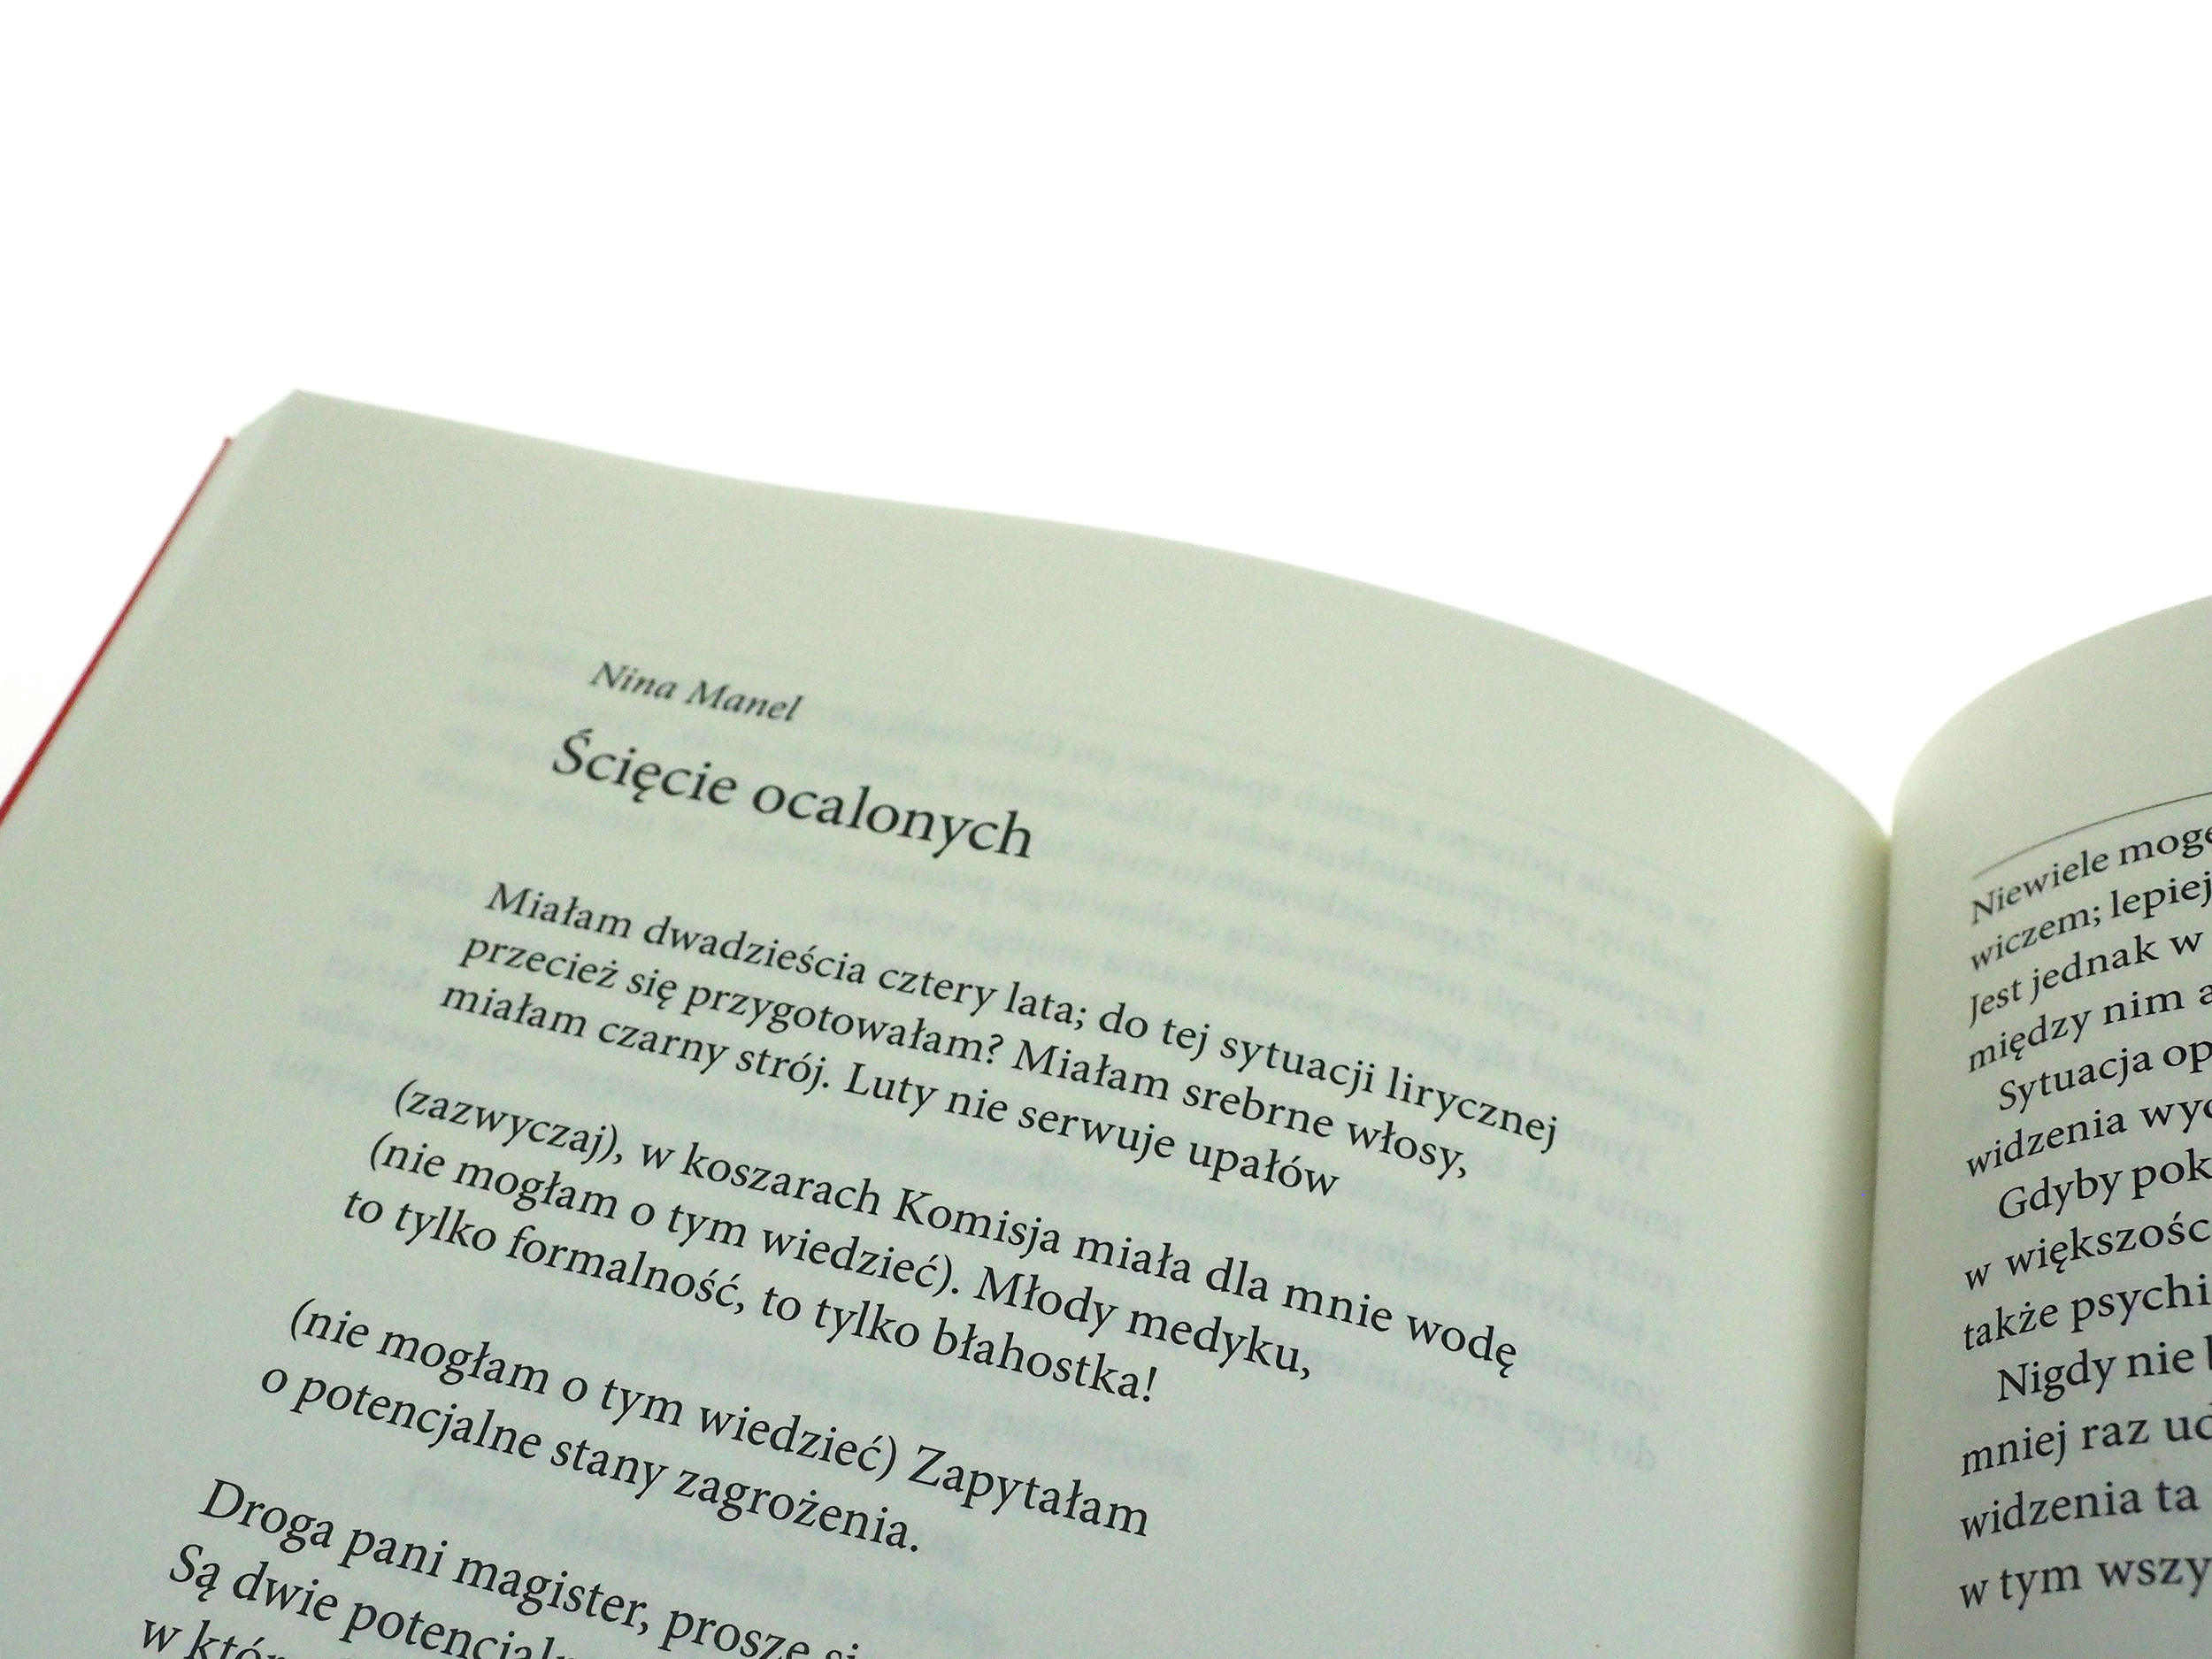 Nina Manel
Ścięcie ocalonych
Miałam dwadzieścia cztery lata; do tej sytuacji lirycznej
przecież się przygotowałam? Miałam srebrne włosy,
miałam czarny strój. Luty nie serwuje upałów
(zazwyczaj), w koszarach Komisja miała dla mnie wodę
(nie mogłam o tym wiedzieć). Młody medyku,
to tylko formalność, to tylko błahostka!
(nie mogłam o tym wiedzieć) Zapytałam
o potencjalne stany zagrożenia.
Droga pani magister, proszę
Są dwie
w
Niewiele
wiczem; lepiej
Jest jednak w
między nim
Sytuacja
widzenia
Gdyby
w
także
Nigdy nie
mniej raz
widzenia ta
w tym